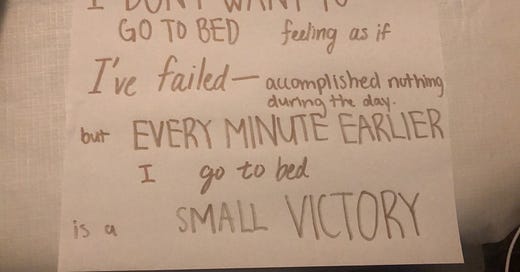 I DON'T WANT TO
GO TO BED feeling as if
I've failed — accomplished nothing
during the day.
but EVERY MINUTE EARLIER
I go to bed
is a SMALL VICTORY